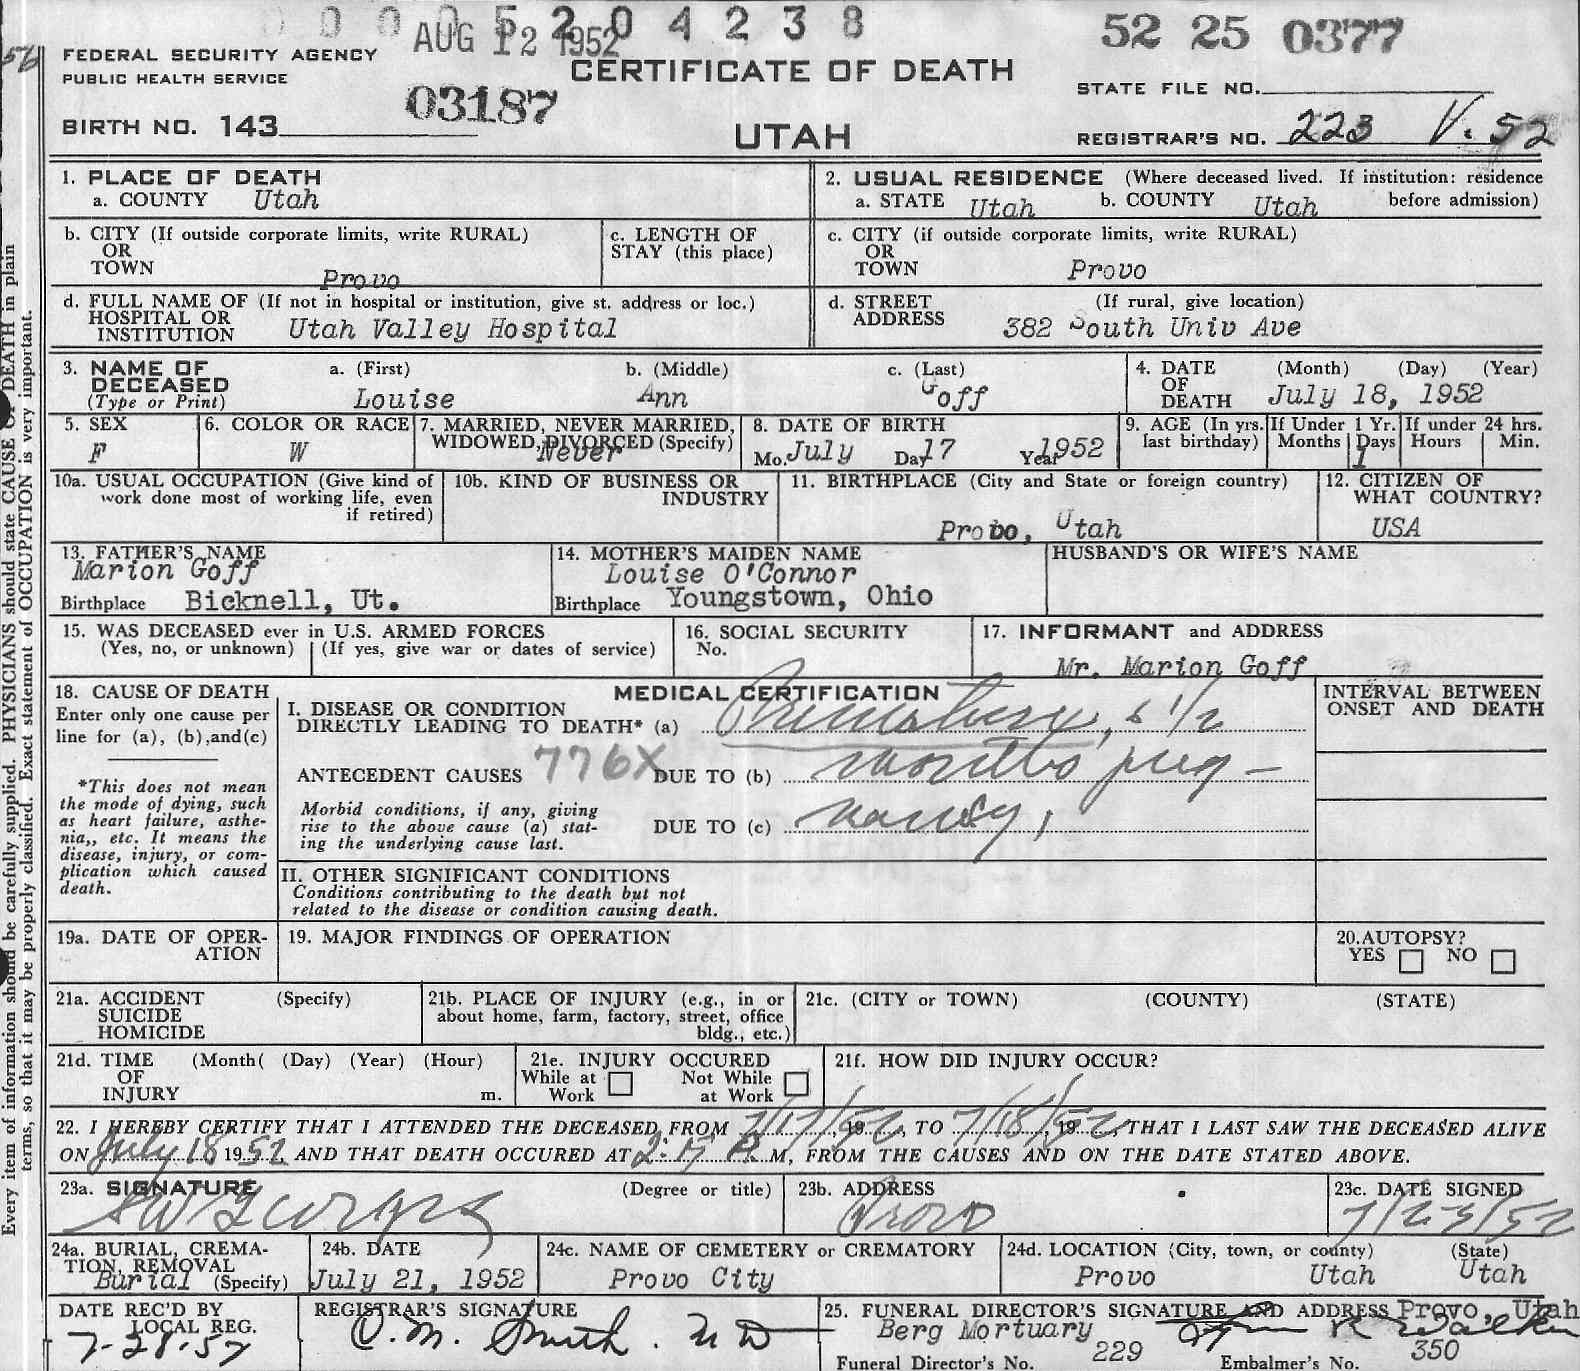 0 0 0 0 5 2 0 4 2 3 8
AUG 12 1952
52 25 0377
56
FEDERAL SECURITY AGENCY
PUBLIC HEALTH SERVICE
CERTIFICATE OF DEATH
STATE FILE NO.
03187
BIRTH NO. 143
UTAH
REGISTRAR'S NO. 223 V. 52
1. PLACE OF DEATH
a. COUNTY Utah
2. USUAL RESIDENCE (Where deceased lived. If institution: residence before admission)
a. STATE Utah b. COUNTY Utah
b. CITY (If outside corporate limits, write RURAL)
OR
TOWN Provo
c. LENGTH OF
STAY (this place)
c. CITY (if outside corporate limits, write RURAL)
OR
TOWN Provo
d. FULL NAME OF (If not in hospital or institution, give st. address or loc.)
HOSPITAL OR
INSTITUTION Utah Valley Hospital
d. STREET (If rural, give location)
ADDRESS 382 South Univ Ave
3. NAME OF
DECEASED
(Type or Print)
a. (First) b. (Middle) c. (Last)
Louise Ann Goff
4. DATE (Month) (Day) (Year)
OF
DEATH July 18, 1952
5. SEX
F
6. COLOR OR RACE
W
7. MARRIED, NEVER MARRIED,
WIDOWED, DIVORCED (Specify)
Never
8. DATE OF BIRTH
Mo. July Day 17 Year 1952
9. AGE (In yrs.
last birthday)
If Under 1 Yr.
Months Days
1
If under 24 hrs.
Hours Min.
10a. USUAL OCCUPATION (Give kind of
work done most of working life, even
if retired)
10b. KIND OF BUSINESS OR
INDUSTRY
11. BIRTHPLACE (City and State or foreign country)
Provo, Utah
12. CITIZEN OF
WHAT COUNTRY?
USA
13. FATHER'S NAME
Marion Goff
Birthplace Bicknell, Ut.
14. MOTHER'S MAIDEN NAME
Louise O'Connor
Birthplace Youngstown, Ohio
HUSBAND'S OR WIFE'S NAME
15. WAS DECEASED ever in U.S. ARMED FORCES
(Yes, no, or unknown) (If yes, give war or dates of service)
16. SOCIAL SECURITY
No.
17. INFORMANT and ADDRESS
Mr. Marion Goff
18. CAUSE OF DEATH
Enter only one cause per
line for (a), (b), and (c)
*This does not mean
the mode of dying, such
as heart failure, asthe-
nia,, etc. It means the
disease, injury, or com-
plication which caused
death.
MEDICAL CERTIFICATION
I. DISEASE OR CONDITION
DIRECTLY LEADING TO DEATH* (a) Prematurity, 6 1/2
ANTECEDENT CAUSES 776X DUE TO (b) months preg-
Morbid conditions, if any, giving
rise to the above cause (a) stat-
ing the underlying cause last.
DUE TO (c) nancy,
II. OTHER SIGNIFICANT CONDITIONS
Conditions contributing to the death but not
related to the disease or condition causing death.
INTERVAL BETWEEN
ONSET AND DEATH
19a. DATE OF OPER-
ATION
19. MAJOR FINDINGS OF OPERATION
20. AUTOPSY?
YES NO
21a. ACCIDENT (Specify)
SUICIDE
HOMICIDE
21b. PLACE OF INJURY (e.g., in or
about home, farm, factory, street, office
bldg., etc.)
21c. (CITY or TOWN) (COUNTY) (STATE)
21d. TIME (Month( (Day) (Year) (Hour)
OF
INJURY m.
21e. INJURY OCCURED
While at Work Not While at Work
21f. HOW DID INJURY OCCUR?
22. I HEREBY CERTIFY THAT I ATTENDED THE DECEASED FROM 7/17/52, 19 52, TO 7/18/52, 19 52, THAT I LAST SAW THE DECEASED ALIVE
ON July 18 1952, AND THAT DEATH OCCURED AT 2:15 A. M, FROM THE CAUSES AND ON THE DATE STATED ABOVE.
23a. SIGNATURE (Degree or title)
23b. ADDRESS
Provo
23c. DATE SIGNED
7/23/52
24a. BURIAL, CREMA-
TION, REMOVAL
Burial (Specify)
24b. DATE
July 21, 1952
24c. NAME OF CEMETERY or CREMATORY
Provo City
24d. LOCATION (City, town, or county) (State)
Provo Utah Utah
DATE REC'D BY
LOCAL REG.
7-28-52
REGISTRAR'S SIGNATURE
O. M. Smith. MD
25. FUNERAL DIRECTOR'S SIGNATURE AND ADDRESS Provo, Utah
Berg Mortuary
Funeral Director's No. 229 Embalmer's No. 350
Every item of information should be carefully supplied. PHYSICIANS should state CAUSE OF DEATH in plain
terms, so that it may be properly classified. Exact statement of OCCUPATION is very important.